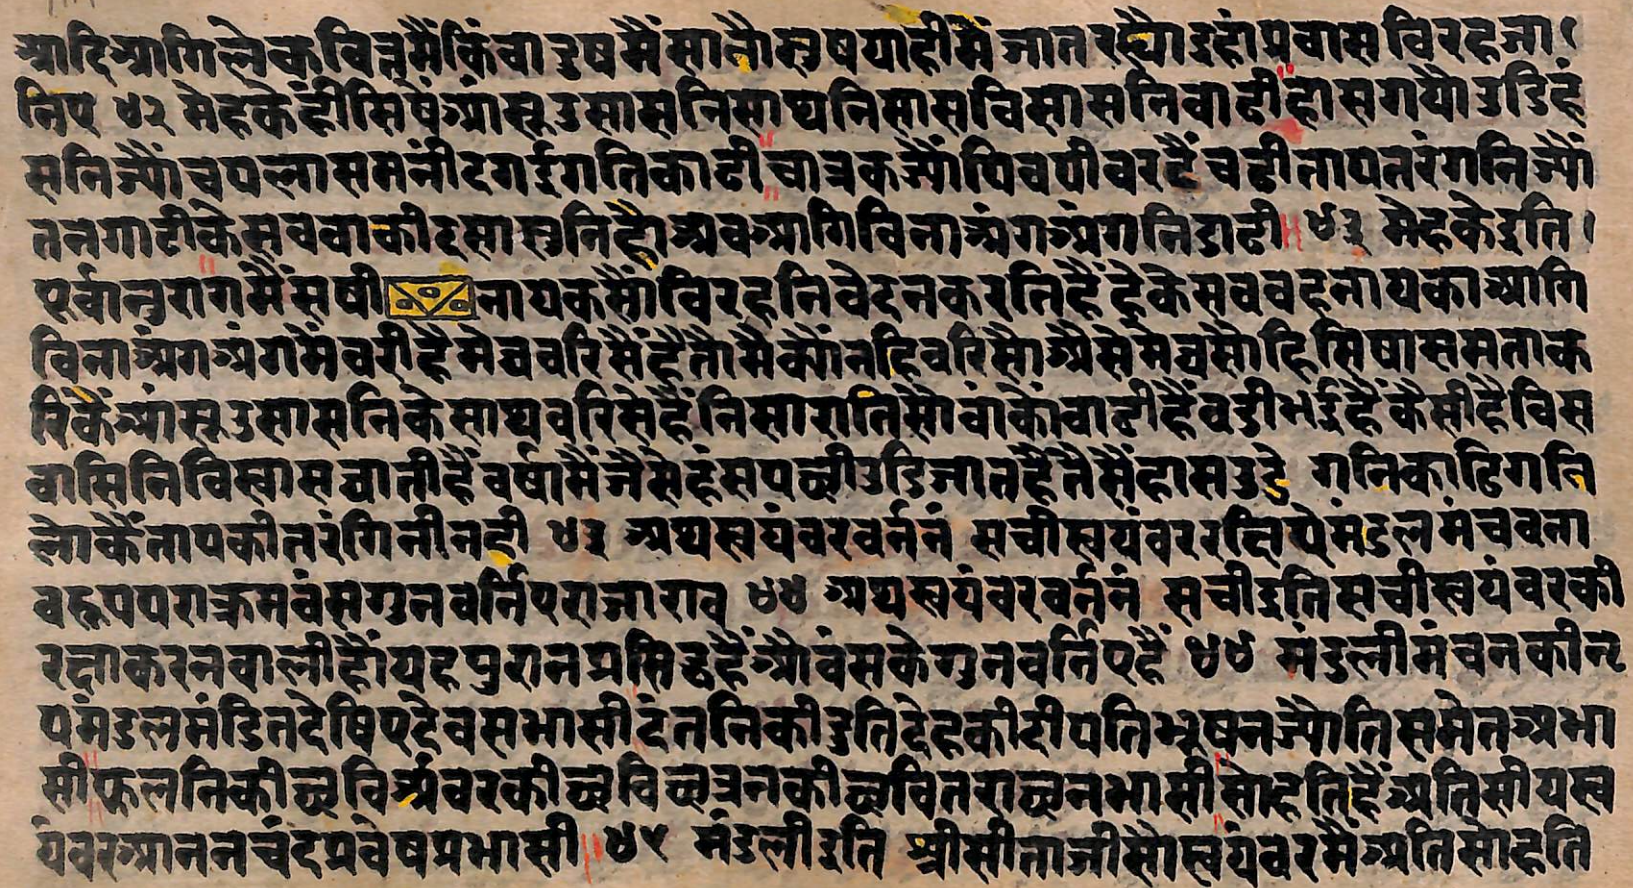 आदिआगिलेकवित्तमैंकिंवादुषमैंसातौसुषयाहीमैंजातरह्यौइहांप्रवासविरहजा
निए ४२ मेहकेहींसिषैंआंसूउसासनिसाथनिसासविसासनिवाढी॥हासगयौउडिहं
सनिज्यौंचपलासमनींदगईगतिकाढी॥चात्रकज्यौंपिवपीवररटैंचढीतापतरंगनिज्यौं
तनगाढीकेसववाकीदसासुनिहौंअवआगिविनाअंगअंगनिडाढी॥४३ मेहकेइति।
पूर्वानुरागमैंसषीनायकसौंविरहनिवेदनकरतिहैंहेकेसववहनायकाआगि
विनाअंगअंगमैंवरीहैमेघवरिसैंहैतौमैक्यौंनहिवरिसौअैसेमेघसौहिसिषासमताक
रिकैंआंसूउसासनिकेसाथवरिसेहैंनिसारातिसौवांकौंवाढीहैंवडीभईहैकैसीहैविस
वासिनिविस्वासघातीहैंवर्षामैंजैसैहंसपछीउडिजातहैतैसैंहासउडे गतिकाढिगति
लोकैंतापकीतरंगिनीनही ४३ अथस्वयंवरवर्ननं सचीस्वयंवररछियेमंडलमंचवना
वरूपपराक्रमवंसगुनवर्निएराजाराव ४४ अथस्वयंवरवर्ननं सचीइतिसचीस्वयंवरकी
रछाकरनवालीहौंयहपुरानप्रसिद्धहैंऔवंसकेगुनवर्तिएहैं ४४ मंडलीमंचनकीनृ
पमंडलमंडितदेषिएदेवसभासीदंतनिकीदुतिदेहकीदीपतिभूषनज्यौतिसमेतअभा
सी॥फूलनिकीछविअंवरकीछविछत्रनकीछवितराछनभासीसोहतिहैंअतिसीयस्व
यंवरआननचंदप्रवेषप्रभासी॥४५ मंडलीइति श्रीसीताजीसौस्वयंवरमैअतिसोहति